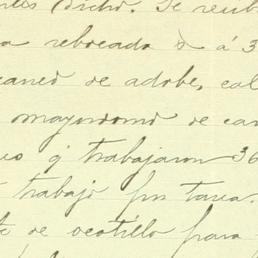 Dicho. Se recib
reboeado á 3
de adobe, cal
mayordomo de ca
q' trabajaron 36
trabajo por tarea.
de ocotillo para